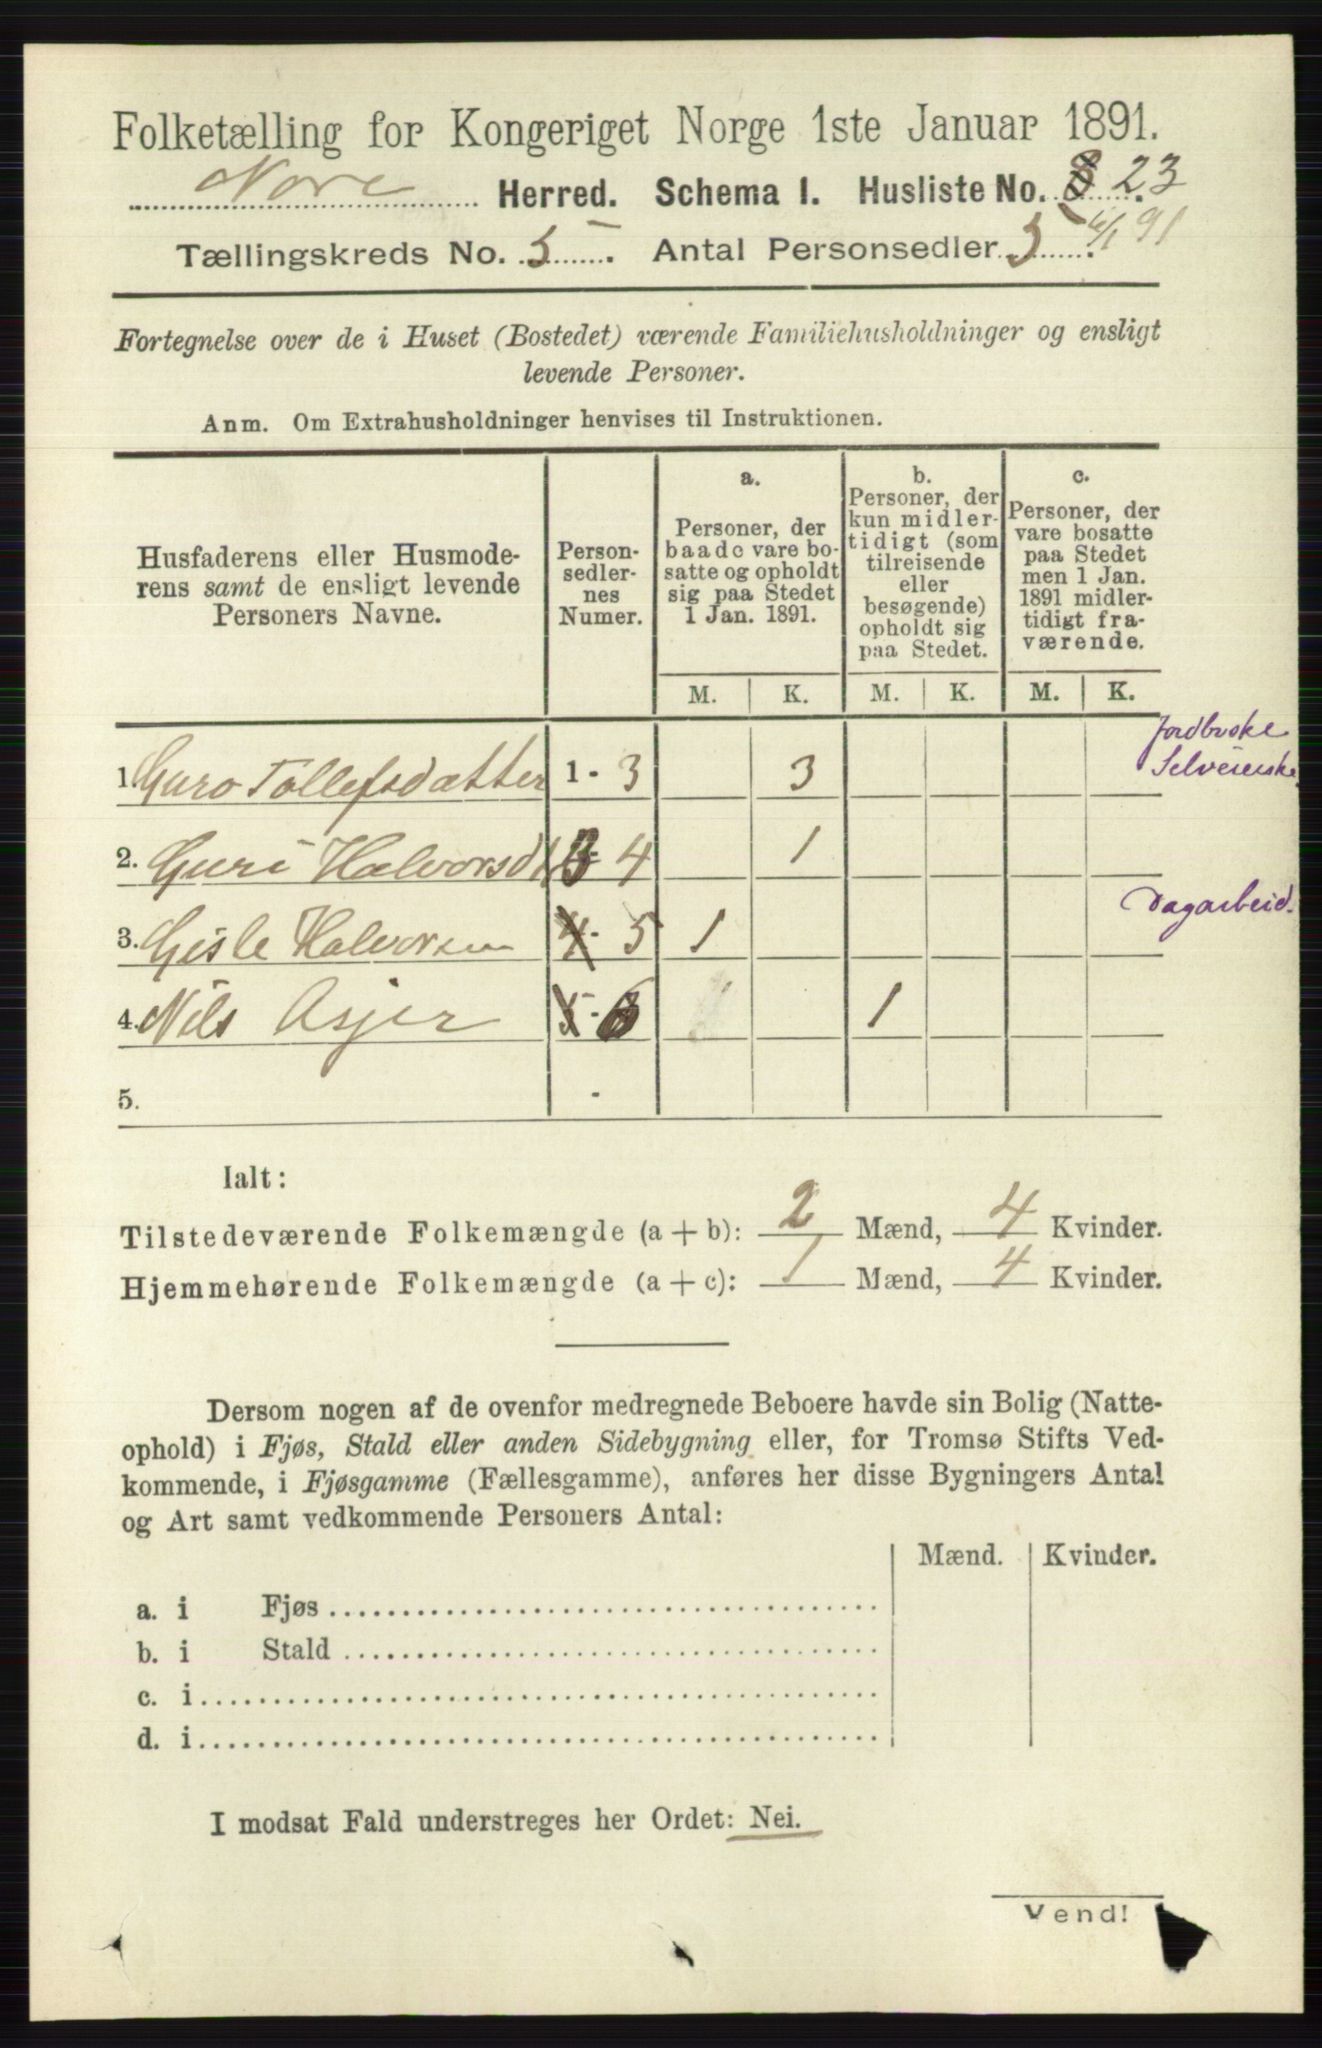 Folketælling for Kongeriget Norge 1ste Januar 1891.
Nore Herred. Schema 1. Husliste No. 8 23
Tællingskreds No. 5. Antal Personsedler 5. 6/1 91
Fortegnelse over de i Huset (Bostedet) værende Familiehusholdninger og ensligt
levende Personer.
Anm. Om Extrahusholdninger henvises til Instruktionen.
Husfaderens eller Husmode-
rens samt de ensligt levende
Personers Navne.
Person-
sedler-
nes
Numer.
a.
Personer, der
baade vare bo-
satte og opholdt
sig paa Stedet
1 Jan. 1891.
b.
Personer, der
kun midler-
tidigt (som
tilreisende
eller
besøgende)
opholdt sig
paa Stedet.
c.
Personer, der
vare bosatte
paa Stedet
men 1 Jan.
1891 midler-
tidigt fra-
værende.
M. K. M. K. M. K.
Jordbruske
Selveierske
1. Guro Tollefsdatter 1 - 3 3
2. Guri Halvorsd 3 - 4 1
Dagarbeid.
3. Gisle Halvorsen 4 - 5 1
4. Nils Asjer 5 - 6 1
5. -
Ialt:
Tilstedeværende Folkemængde (a + b): 2 Mænd, 4 Kvinder.
Hjemmehørende Folkemængde (a + c): 1 Mænd, 4 Kvinder.
Dersom nogen af de ovenfor medregnede Beboere havde sin Bolig (Natte-
ophold) i Fjøs, Stald eller anden Sidebygning eller, for Tromsø Stifts Ved-
kommende, i Fjøsgamme (Fællesgamme), anføres her disse Bygningers Antal
og Art samt vedkommende Personers Antal:
Mænd. Kvinder.
a. i Fjøs
b. i Stald
c. i
d. i
I modsat Fald understreges her Ordet: Nei.
Vend!